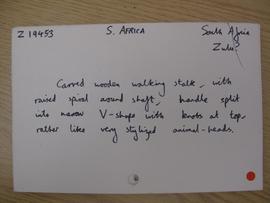 Z 19453 S. AFRICA South Africa
Zulu
Carved wooden walking stalk, with
raised spiral around shaft, handle split
into narrow V-shape with knots at top,
rather like very stylized animal-heads.